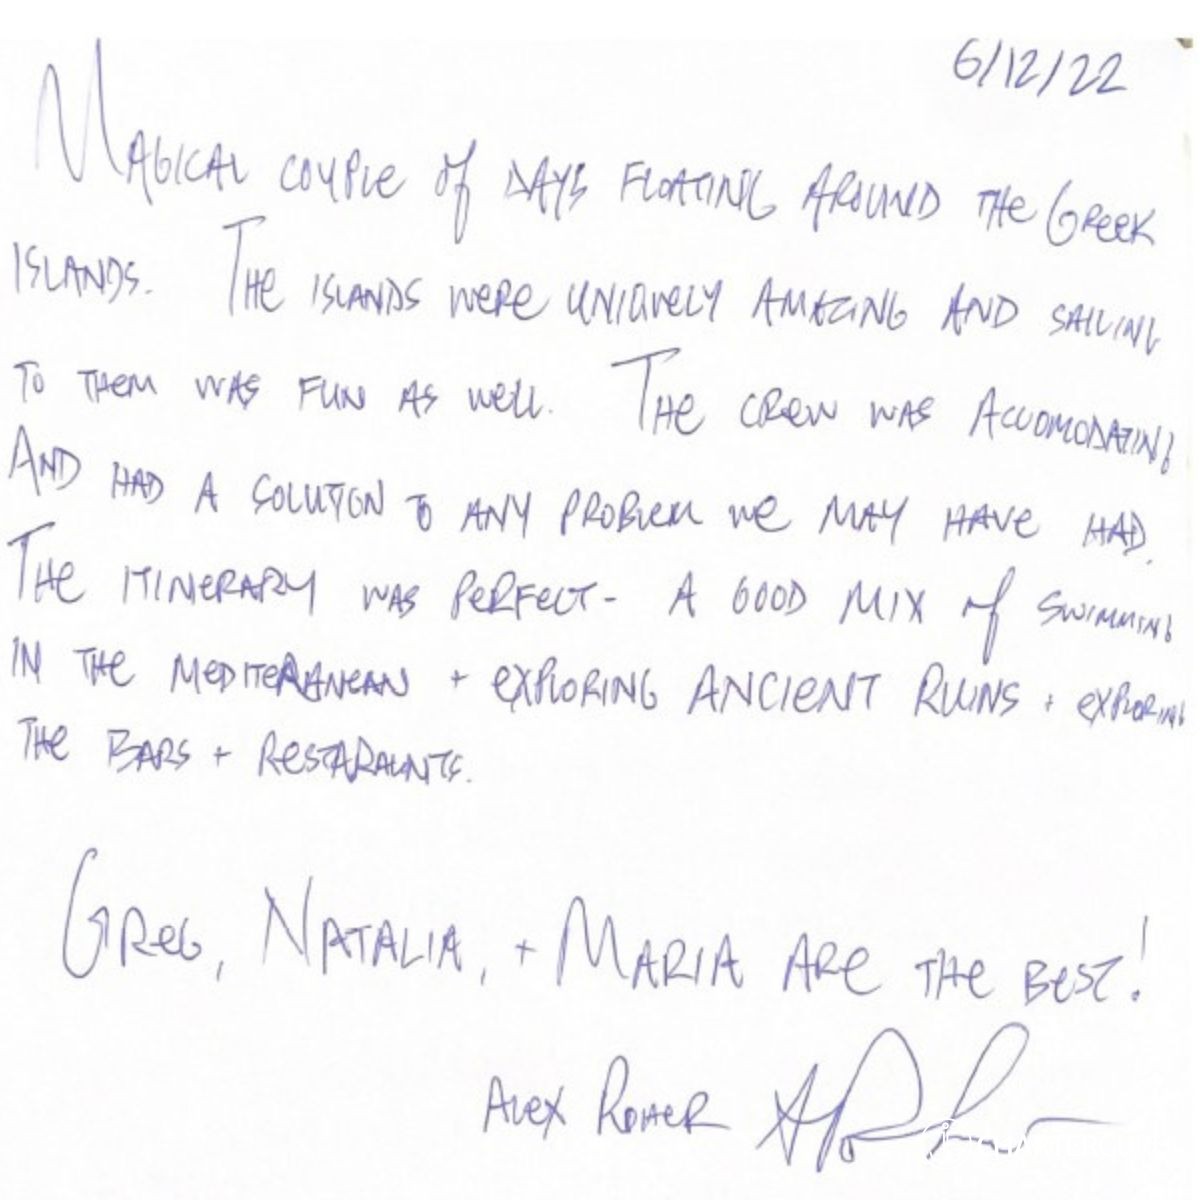 6/12/22
MAGICAL COUPLE OF DAYS FLOATING AROUND THE GREEK
ISLANDS. THE ISLANDS WERE UNIQUELY AMAZING AND SAILING
TO THEM WAS FUN AS WELL. THE CREW WAS ACCOMODATING
AND HAD A SOLUTION TO ANY PROBLEM WE MAY HAVE HAD.
THE ITINERARY WAS PERFECT - A GOOD MIX OF SWIMMING
IN THE MEDITERANEAN + EXPLORING ANCIENT RUINS + EXPLORING
THE BARS + RESTARAUNTS.
GREG, NATALIA, + MARIA ARE THE BEST!
ALEX ROHER